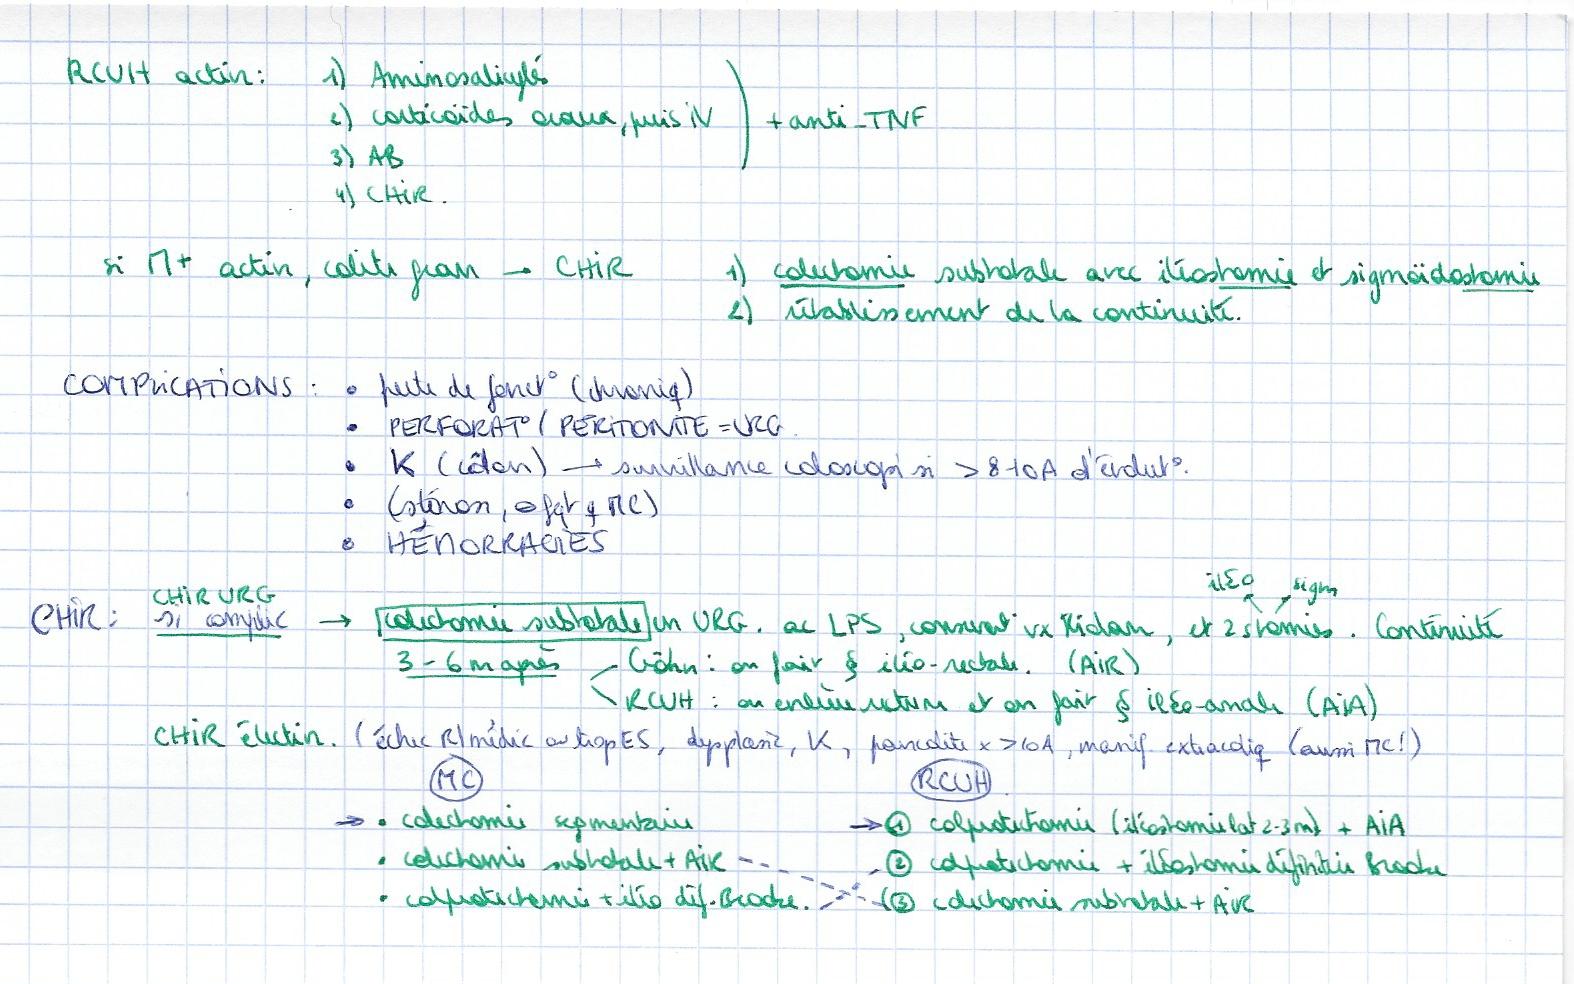 RCUH activ : 1) Aminosalicylés
2) corticoïdes oraux, puis IV + anti-TNF
3) AB
4) CHIR.
si M+ activ, colite grav → CHIR 1) colectomie subtotale avec iléostomie et sigmoïdostomie
2) rétablissement de la continuité.
COMPLICATIONS : • perte de fonct° (chroniq)
• PERFORAT° / PÉRITONITE = URG.
• K (côlon) → surveillance coloscopi si > 8-10A d'évolut°.
• (sténose, ⊖ fqt q MC)
• HÉMORRAGIES
iléo sigm
CHIR URG
CHIR : si complic → colectomie subtotale en URG. ac LPS, conservat° vx, et 2 stomies. Continuité
3-6 m après Cröhn : on fait § iléo-rectale. (AIR)
RCUH : on enlève rectum et on fait § iléo-anale (AIA)
CHIR électiv. (échec R/ médic ou trop ES, dysplasie, K, pancolite x > 10A, manif. extracoliq (aussi MC!)
MC RCUH
→ • colectomie segmentaire → ① colproctectomie (iléostomie lat 2-3m) + AIA
• colectomie subtotale + AIR ② colproctectomie + iléostomie définitive Brooke
• colproctectomie + iléo déf. Brooke. (③ colectomie subtotale + AIR